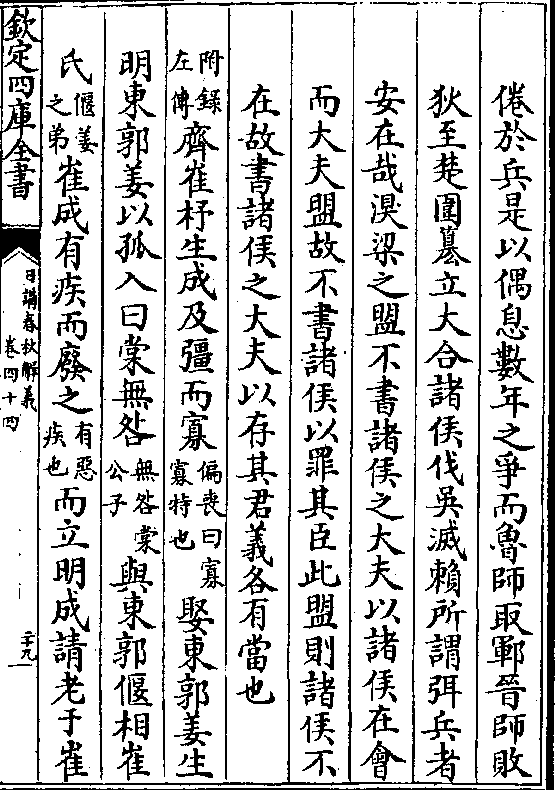 倦於兵是以偶息數年之爭而魯師取鄆晉師敗
狄至楚圍簒立大合諸侯伐吳滅賴所謂弭兵者
安在哉湨梁之盟不書諸侯之大夫以諸侯在會
而大夫盟故不書諸侯以罪其臣此盟則諸侯不
在故書諸侯之大夫以存其君義各有當也
附錄左傳齊崔杼生成及彊而寡偏喪曰寡寡特也娶東郭姜生
明東郭姜以孤入曰棠無咎無咎棠公子與東郭偃相崔
氏偃姜之弟崔成有疾而廢之有惡疾也而立明成請老于崔
欽定四庫全書
日講春秋解義
卷四十四
二十九